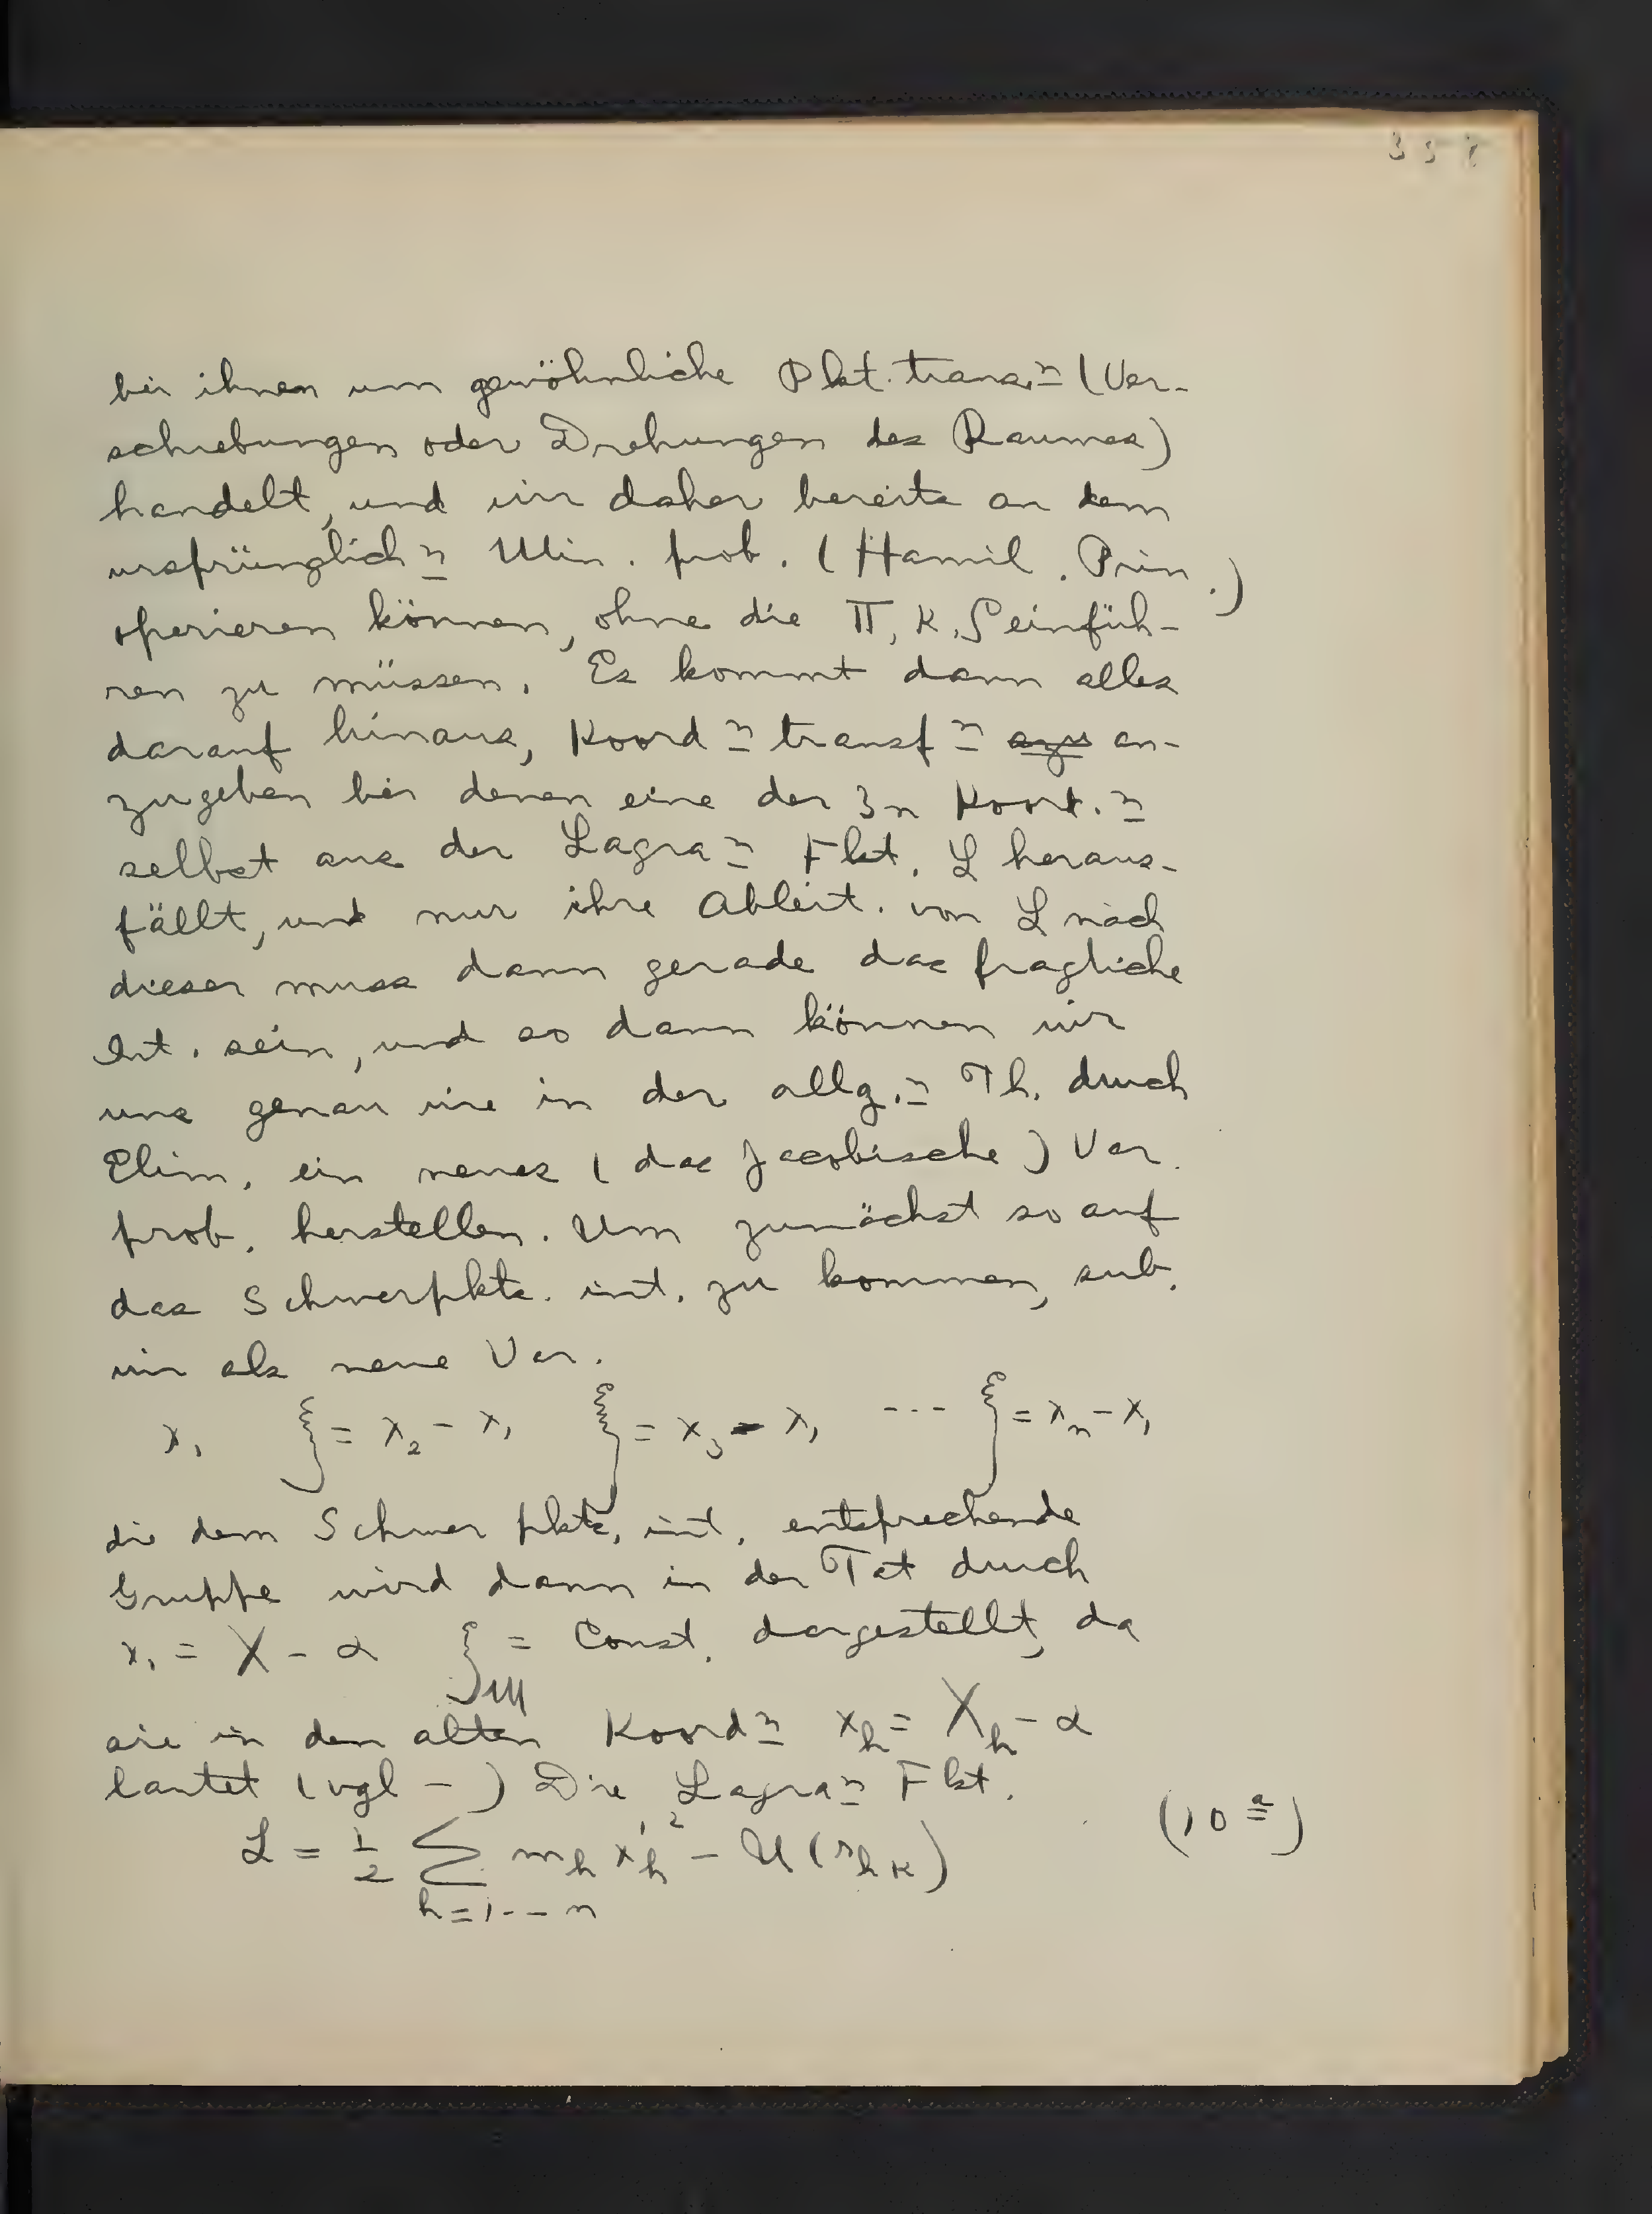 357
bei ihnen um gewöhnliche Pkt. trans.n (Ver-
schiebungen oder Drehungen des Raumes)
handelt, und wir daher bereits an dem
ursprünglichn Min. prob. (Hamil. Prin.)
operieren können, ohne die Π, K, S einfüh-
ren zu müssen. Es kommt dann alles
darauf hinaus, Koordn transfn azu an-
zugeben bei denen eine der 3n Koord.n
selbst aus der Lagran Fkt. L heraus-
fällt, und nur ihre Ableit. von L nach
dieser muss dann gerade das fragliche
Int. sein, und so dann können wir
uns genau wie in der allg.n Th. durch
Elim. ein neues (das Jacobische) Var.
prob. herstellen. Um zunächst so auf
das Schwerpkts. int. zu kommen, sub.
wir als neue Var.
x₁ ξ = x₂ - x₁ ξ = x₃ - x₁ --- ξ = xₙ - x₁
die dem Schwerpkts. int. entsprechende
Gruppe wird dann in der Tat durch
x₁ = X - α ξ = Const. dargestellt, da
sie in den alten Koordn x_h = X_h - α
lautet (vgl - ) Die Lagran Fkt.
L = 1/2 Σ m_h x'_h² - U(r_hk) (10a)
h=1--n